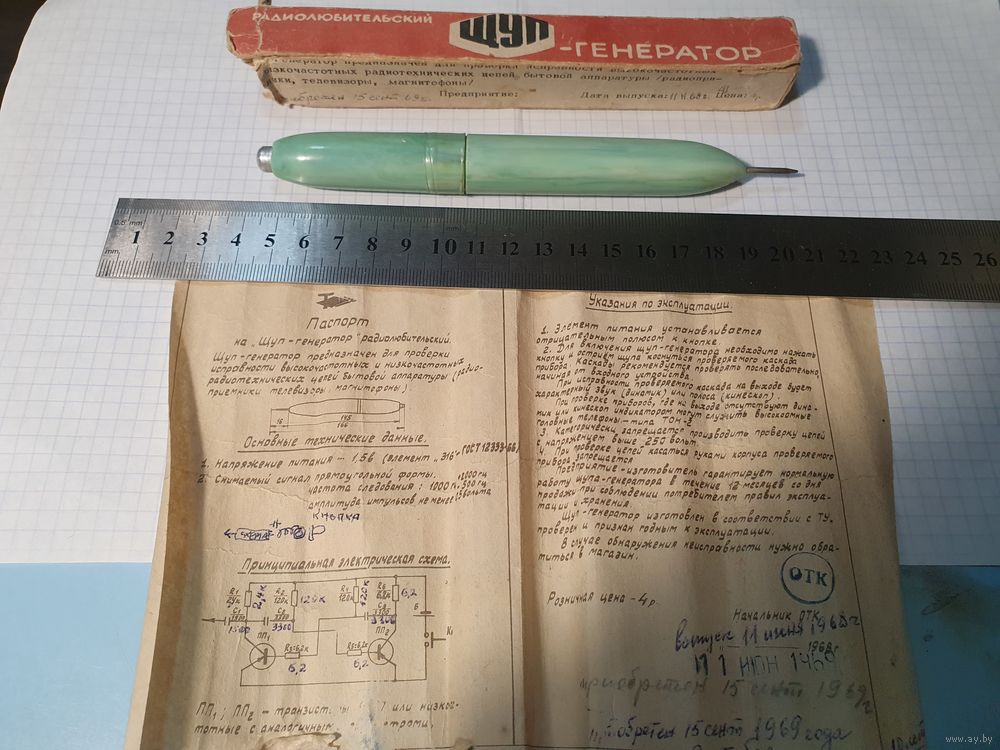 РАДИОЛЮБИТЕЛЬСКИЙ
ЩУП
-ГЕНЕРАТОР
Генератор предназначен для проверки исправности высокочастотных
низкочастотных радиотехнических цепей бытовой аппаратуры /радиопри-
ки, телевизоры, магнитофоны/
15 сент 69г. Предприятие: Дата выпуска: Цена:
0,5 mm
mm
1 2 3 4 5 6 7 8 9 10 11 12 13 14 15 16 17 18 19 20 21 22 23 24 25 26
Паспорт
на „Щуп-генератор" радиолюбительский.
Щуп-генератор предназначен для проверки
исправности высокочастотных и низкочастотных
радиотехнических цепей бытовой аппаратуры (радио-
приемники телевизоры магнитофоны)
16
145
166
Основные технические данные.
1. Напряжение питания – 1,5в (элемент „316" ГОСТ 12333-66)
2. Снимаемый сигнал прямоугольной формы.
частота следования: 1000 гц
амплитуда импульсов не менее вольта
КНОПКА
СХЕМА
Принципиальная электрическая схема.
R1
2,4к
R2
120к
120к
R4
120к
120к
R5
6,2
C1
1500
C2
3300
3300
ПП1
ПП2
R3=6,2к
6,2
6,2к
6,2
Б
К1
ПП1; ПП2 – транзисторы или низкоч-
тотные с аналогичным
Указания по эксплуатации.
1. Элемент питания устанавливается
отрицательным полюсом к кнопке.
2. Для включения щуп-генератора необходимо нажать
кнопку и острием щупа коснуться проверяемого каскада
прибора. Каскады рекомендуется проверять последовательно,
начиная от входного устройства.
При исправности проверяемого каскада на выходе будет
характерный звук (динамик) или полоса (кинескоп).
При проверке приборов, где на выходе отсутствуют дина-
мик или кинескоп индикатором могут служить высокоомные
головные телефоны – типа ТОН-2
3. Категорически запрещается производить проверку цепей
с напряжением выше 250 вольт.
4. При проверке цепей касаться руками корпуса проверяемого
прибора запрещается.
Предприятие-изготовитель гарантирует нормальную
работу щупа-генератора в течение 12 месяцев со дня
продажи при соблюдении потребителем правил эксплуа-
тации и хранения.
Щуп-генератор изготовлен в соответствии с ТУ,
проверен и признан годным к эксплуатации.
В случае обнаружения неисправности нужно обра-
титься в магазин.
ОТК
Розничная цена – 4р.
Начальник ОТК
выпуск 11 июня 1968г
1968г
11 ИЮН 196
приобретен 15 сент 1969г
приобретен 15 сент 1969 года
www.ay.by